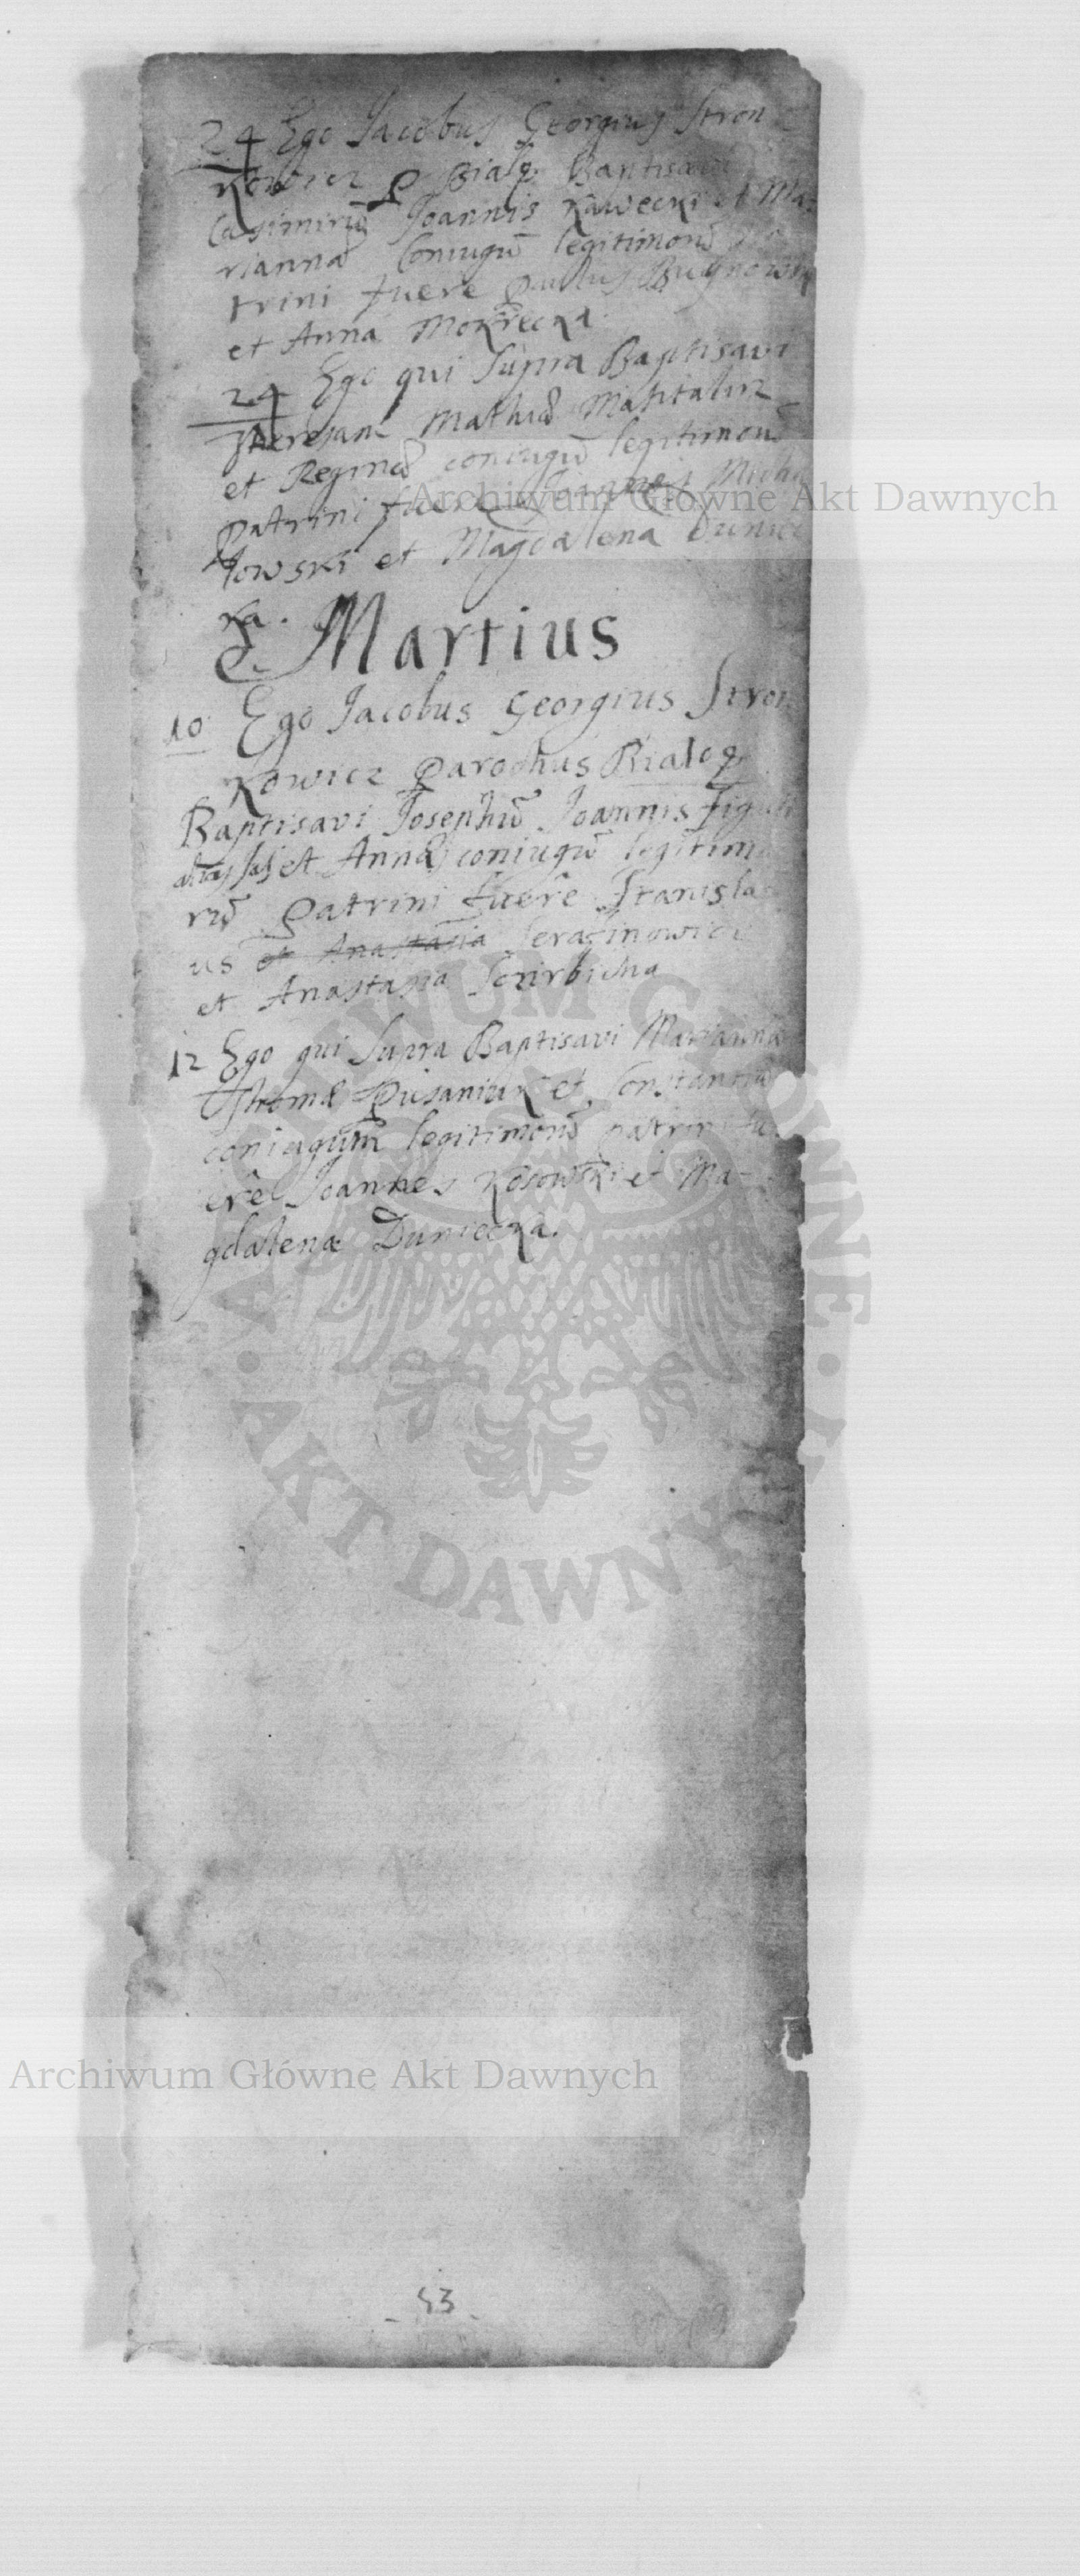 24 Ego Jacobus Georgius Stron
Kowicz P Bialq. Baptisavi
Casimirũ Joannis Kawecki et Ma:
rianna Coniugũ legitimorũ
trini fuere Paulus Bugnowsk
et Anna Mokrecka.
24 Ego qui Supra Baptisavi
Theresam Mathiæ
et Reginæ coniugũ legitimorũ
Patrini fuere Joannes Micha
łowski et Magdalena Duniec
ka.
Martius
10 Ego Jacobus Georgius Stron
Kowicz Parochus Bialoq
Baptisavi Josephũ Joannis Figuli
et Annæ coniugũ legitimo
rũ Patrini fuere Stanisla
us et Anastasia Serafinowicz
et Anastasia
12 Ego qui Supra Baptisavi Mariannã
Thomæ et Constantiæ
coniugum legitimorũ patrini fu
ere Joannes Kosowski et Ma-
gdalena Duniecka.
- 53 -
Archiwum Główne Akt Dawnych
ARCHIWUM GŁÓWNE · AKT DAWNYCH ·
Archiwum Główne Akt Dawnych